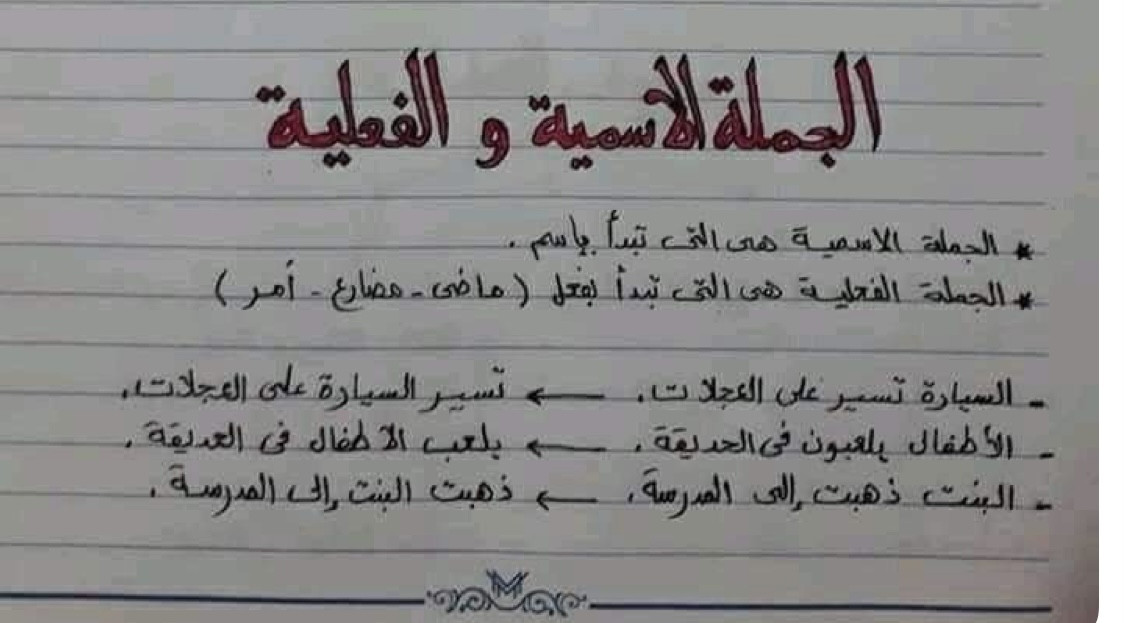 الجملة الاسمية و الفعلية
* الجملة الاسمية هى التى تبدأ بإسم .
* الجملة الفعلية هى التى تبدأ بفعل ( ماضى - مضارع - أمر )
- السيارة تسير على العجلات . ← تسير السيارة على العجلات .
- الأطفال يلعبون فى الحديقة . ← يلعب الاطفال فى الحديقة .
- البنت ذهبت إلى المدرسة . ← ذهبت البنت إلى المدرسة .